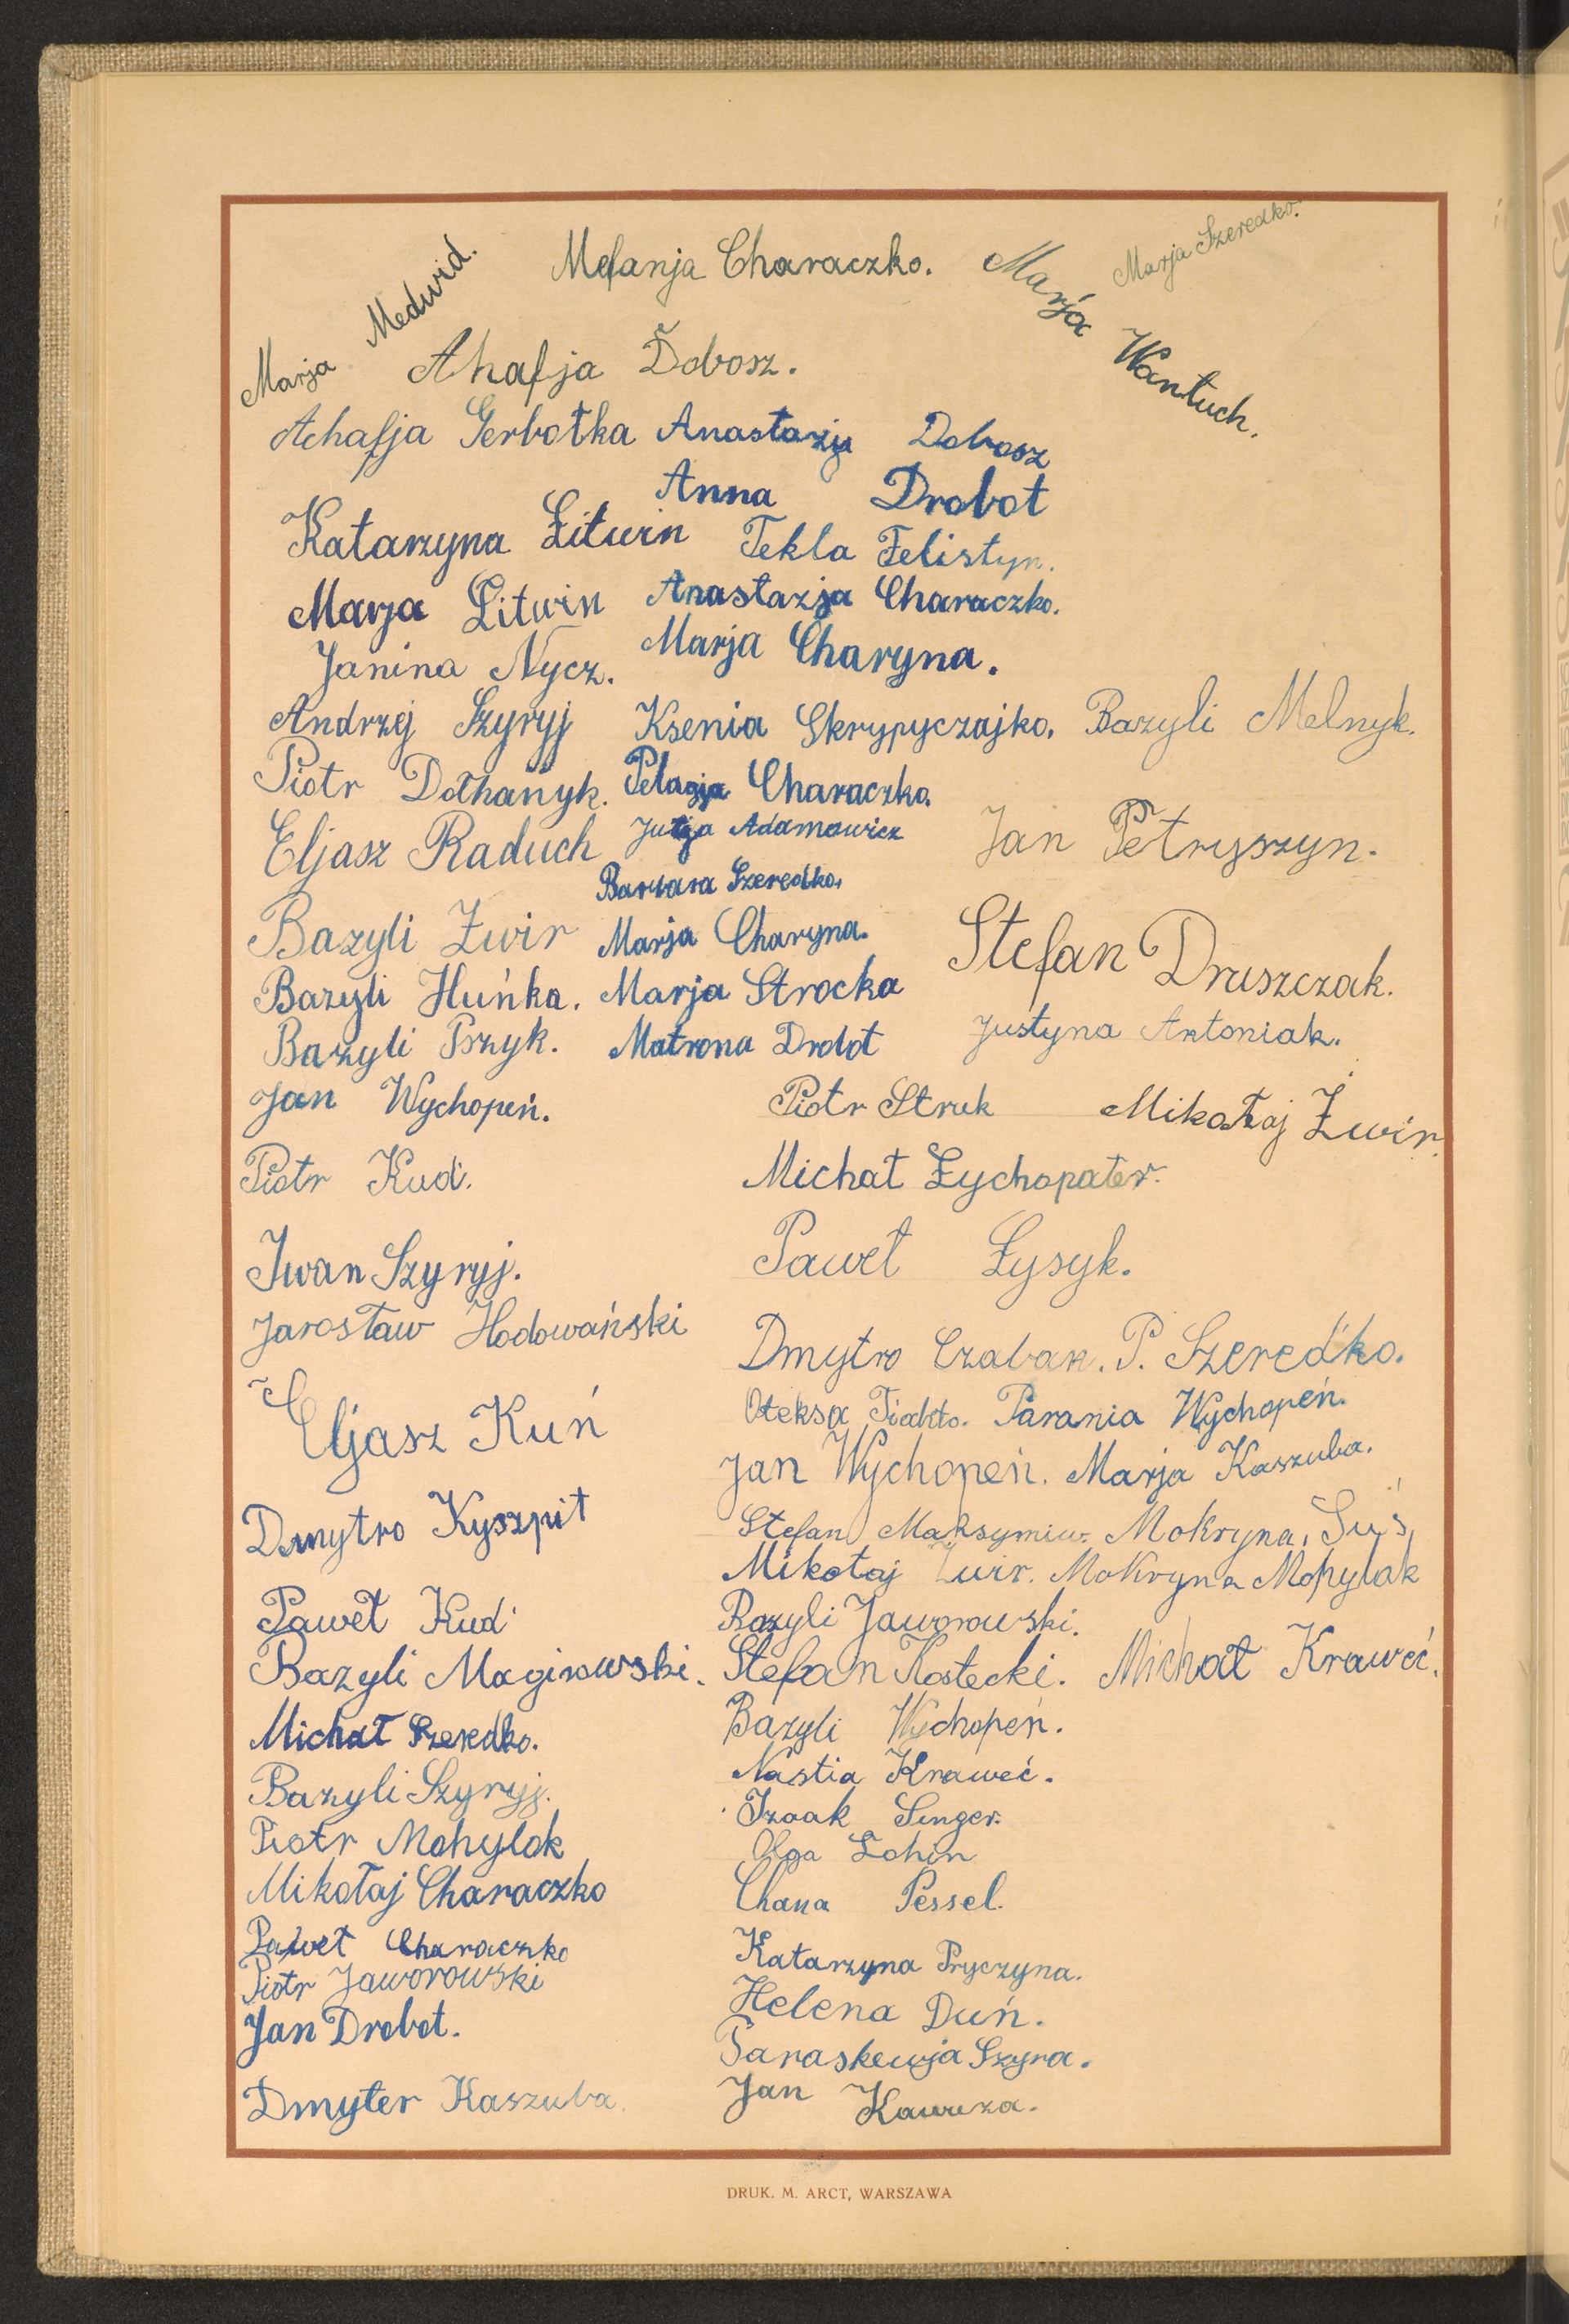 Marja Medwid.
Mełanja Characzko.
Marja Wantuch.
Marja Szeredko.
Ahafja Dobosz.
Achafja Gerbotka Anastazja Dobosz
Anna Drobot
Katarzyna Litwin Tekla Felistyn.
Marja Litwin Anastazja Characzko.
Janina Nycz. Marja Charyna.
Andrzej Szyryj Ksenia Skrypyczajko. Bazyli Melnyk.
Piotr Dołhanyk. Pelagja Characzko.
Eljasz Raduch Julja Adamowicz Jan Petryszyn.
Barbara Szeredko.
Bazyli Żwir Marja Charyna. Stefan Druszczak.
Bazyli Huńka. Marja Strocka
Bazyli Pszyk. Matrona Drobot Justyna Antoniak.
Jan Wychopeń. Piotr Struk Mikołaj Żwir.
Piotr Kud'. Michał Łychopater.
Iwan Szyryj. Paweł Łysyk.
Jarosław Hodowański
Dmytro Czaban. P. Szeredko.
Eljasz Kuń Ołeksa Tiahło. Parania Wychopeń.
Jan Wychopeń. Marja Kaszuba.
Dmytro Kyszpit Stefan Maksymiw. Mokryna Suś,
Mikołaj Żwir. Mokryna Mohylak
Paweł Kud' Bazyli Jaworowski.
Bazyli Magirowski. Stefan Kostecki. Michał Kraweć.
Michał Szeredko. Bazyli Wychopeń.
Bazyli Szyryj. Nastia Kraweć.
Piotr Mohylak Izaak Singer.
Olga Łohin
Mikołaj Characzko Chana Pessel.
Paweł Characzko Katarzyna Pryczyna.
Piotr Jaworowski
Jan Drobot. Helena Duń.
Paraskewja Szyra.
Dmyter Kaszuba. Jan Kawuza.
DRUK. M. ARCT, WARSZAWA